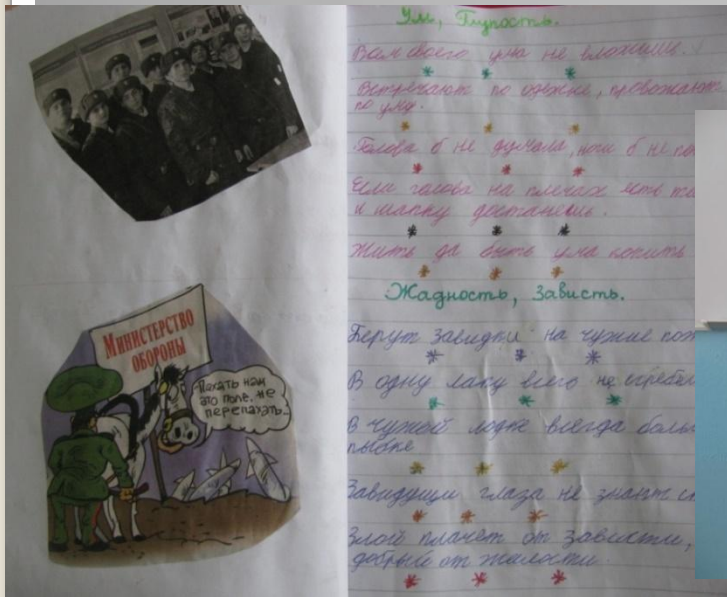 МИНИСТЕРСТВО
ОБОРОНЫ
-Пахать нам
это поле, не
перепахать...
Ум, Глупость.
Вам своего ума не вложишь.
Встречают по одежке, провожают
по уму.
Голова б не думала, ноги б не
Если голова на плечах есть
и шапку достанешь.
Жить да быть ума копить
Жадность, Зависть.
Берут завидки на чужие
В одну лапу всего не сгребёшь
В чужой лодке всегда больше
рыбке
Завидущи глаза не знают
Злой плачет от зависти,
добрый от жалости.